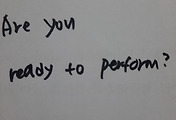 Are you
ready to perform?